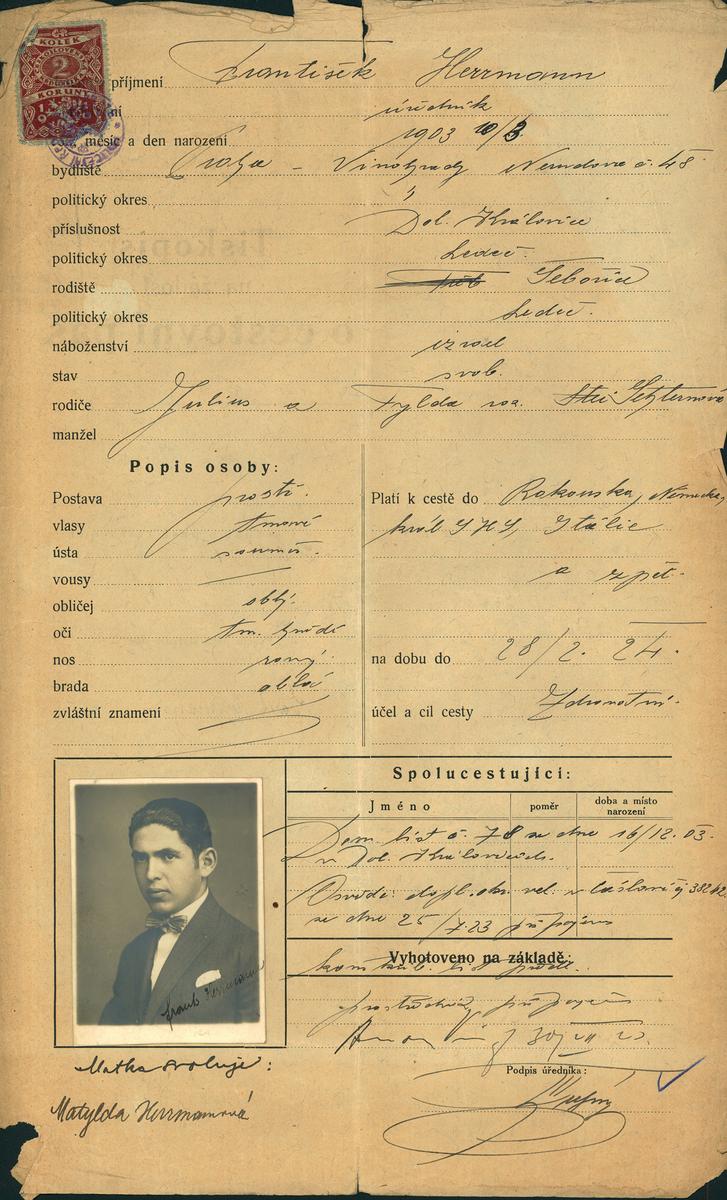 KOLEK
2
KORUNY
příjmení František Herrmann
úředník
měsíc a den narození 1903 10/3
bydliště Praha - Vinohrady Nerudova č. 48
politický okres "
příslušnost Dol. Královice
politický okres Ledeč.
rodiště
politický okres Ledeč.
náboženství izrael
stav svob.
rodiče Julius a
manžel
Popis osoby:
Postava prostř.
vlasy tmavé
ústa souměr.
vousy —
obličej oblý.
oči tm. hnědé
nos rovný.
brada oblá
zvláštní znamení
Platí k cestě do Rakouska, Německa,
král. S.H.S., Itálie
a zpět.
na dobu do 28/2. 24.
účel a cíl cesty Zdravotní.
Spolucestující:
Jméno poměr doba a místo narození
Dom. list č. 78 ze dne 16/12. 03.
v Dol. Královicích.
ze dne 25/7.23 připojeno
Vyhotoveno na základě:
připojeno
Podpis úředníka:
Frant. Herrmann
Matka svoluje:
Matylda Herrmanová